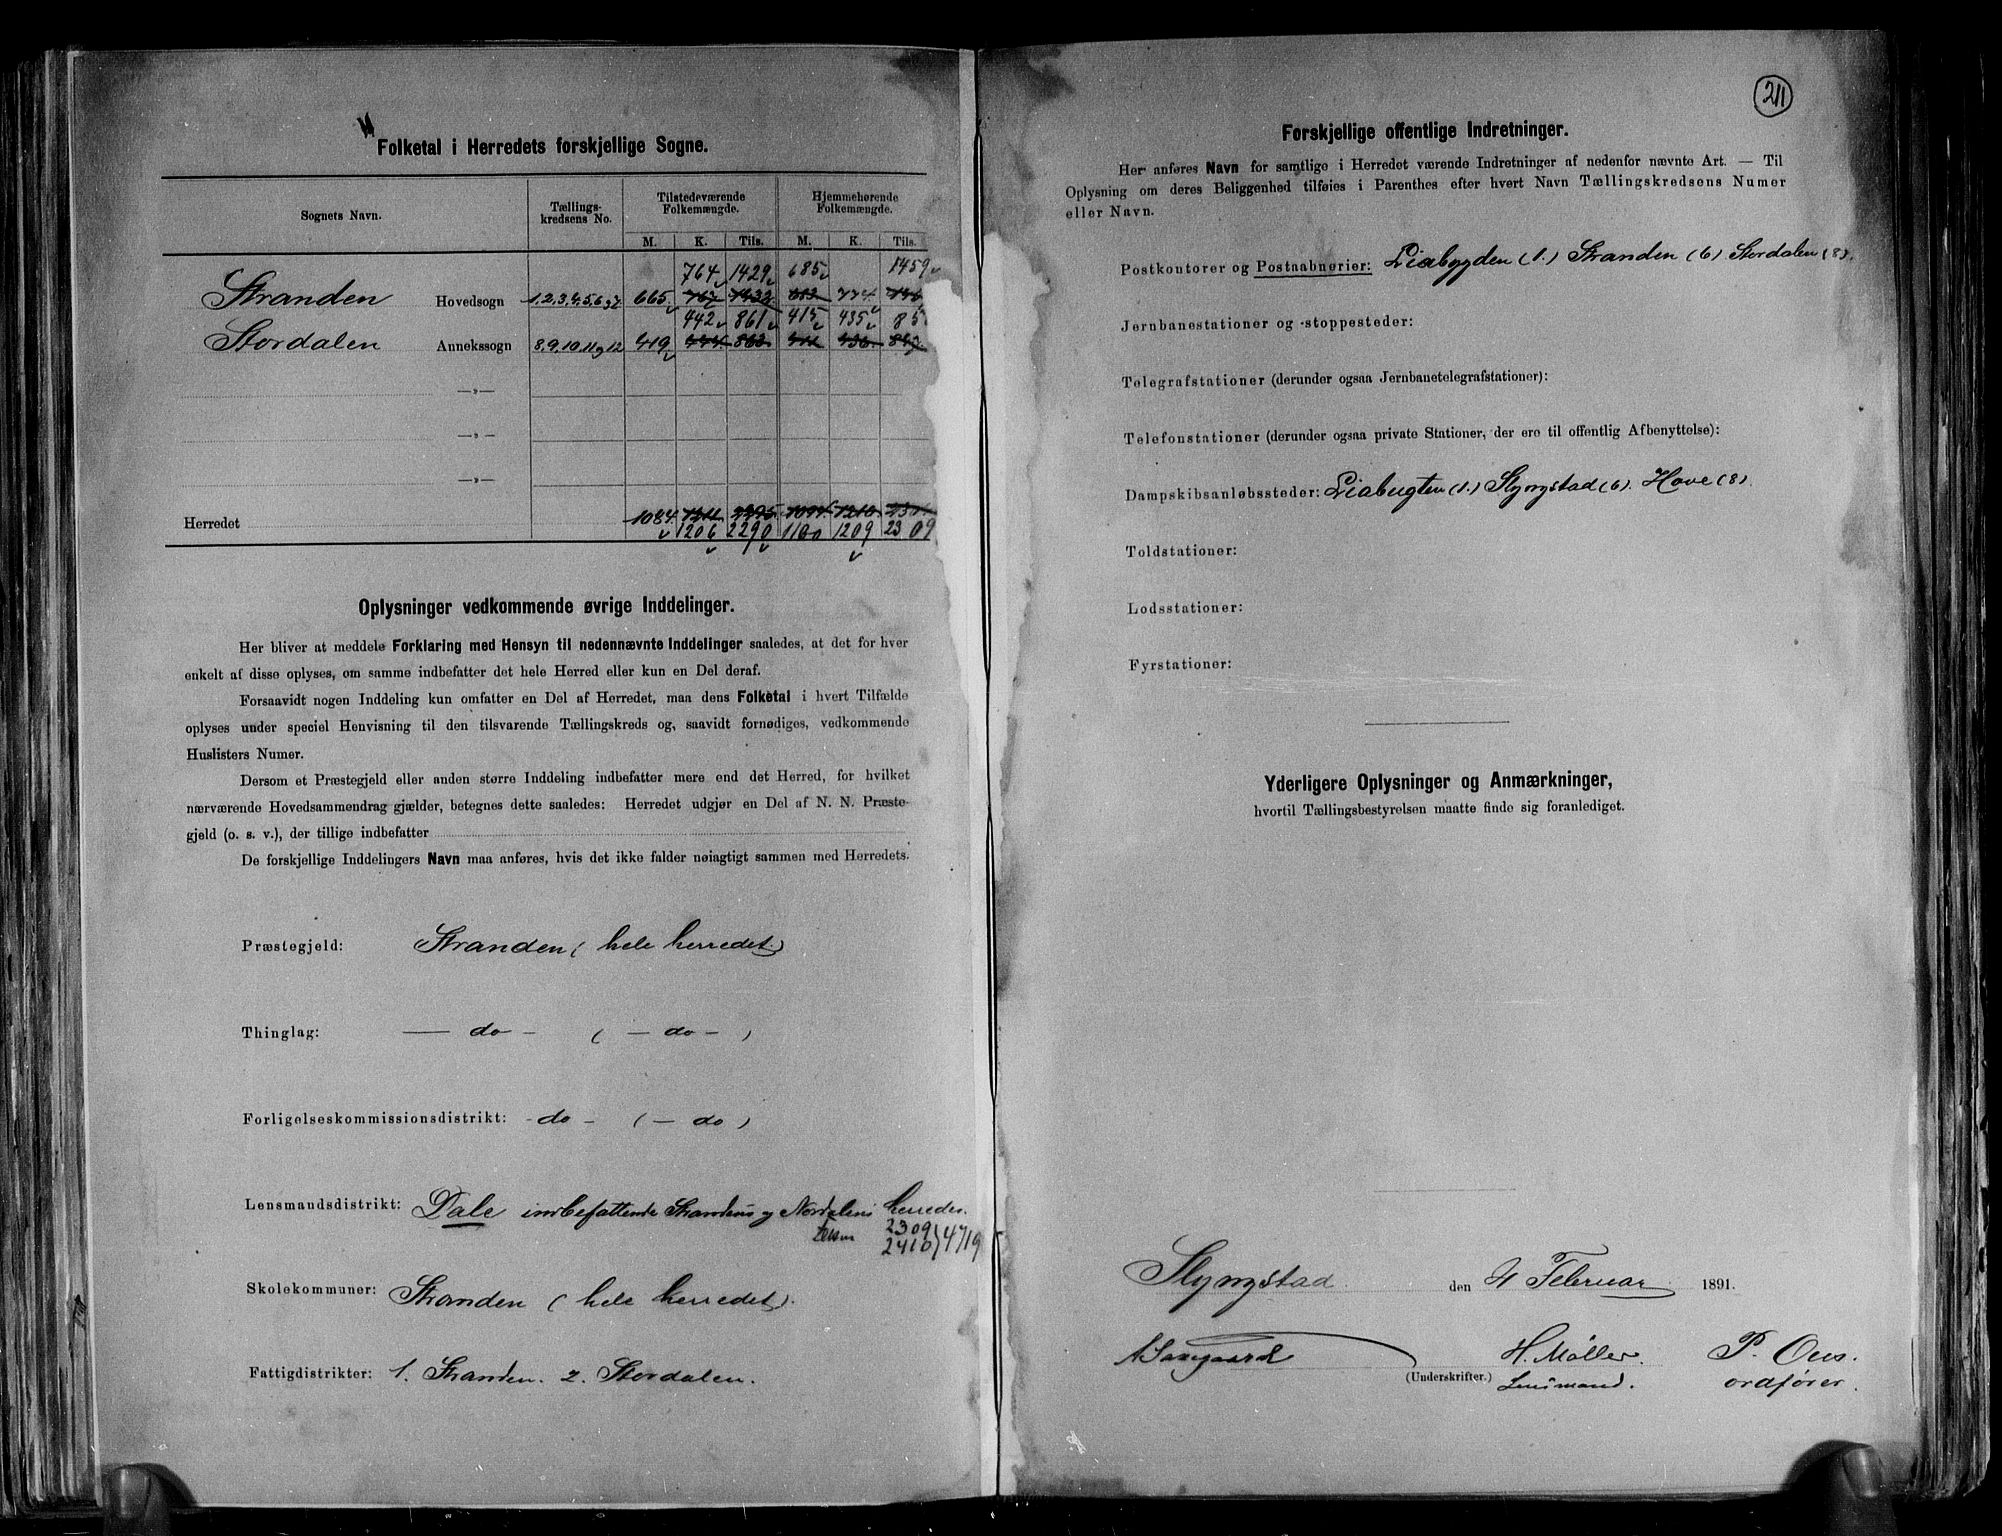 Folketal i Herredets forskjellige Sogne.
Sognets Navn. Tællings-kredsens No. Tilstedeværende Folkemængde. Hjemmehørende Folkemængde.
M. K. Tils. M. K. Tils.
764 1429 685 1459
Stranden Hovedsogn 1,2,3,4,5,6 og 7 665 767 1432 683 774
442 861 415 435 85
Stordalen Annekssogn 8,9,10,11 og 12 419 444 863 411 436
—„—
—„—
—„—
Herredet 1084 1211 2295 1094 1210
1206 2290 1100 1209 2309
Oplysninger vedkommende øvrige Inddelinger.
Her bliver at meddele Forklaring med Hensyn til nedennævnte Inddelinger saaledes, at det for hver
enkelt af disse oplyses, om samme indbefatter det hele Herred eller kun en Del deraf.
Forsaavidt nogen Inddeling kun omfatter en Del af Herredet, maa dens Folketal i hvert Tilfælde
oplyses under speciel Henvisning til den tilsvarende Tællingskreds og, saavidt fornødiges, vedkommende
Huslisters Numer.
Dersom et Præstegjeld eller anden større Inddeling indbefatter mere end det Herred, for hvilket
nærværende Hovedsammendrag gjælder, betegnes dette saaledes: Herredet udgjør en Del af N. N. Præste-
gjeld (o. s. v.), der tillige indbefatter
De forskjellige Inddelingers Navn maa anføres, hvis det ikke falder nøiagtigt sammen med Herredets.
Præstegjeld: Stranden (hele herredet)
Thinglag: — do — ( — do — )
Forligelseskommissionsdistrikt: - do - ( — do )
Lensmandsdistrikt: Dale indbefattende Strandens og Nordalens herreder.
2309
2410 } 4719
Skolekommuner: Stranden (hele herredet).
Fattigdistrikter: 1. Stranden. 2. Stordalen.
211
Forskjellige offentlige Indretninger.
Her anføres Navn for samtlige i Herredet værende Indretninger af nedenfor nævnte Art. — Til
Oplysning om deres Beliggenhed tilføies i Parenthes efter hvert Navn Tællingskredsens Numer
eller Navn.
Postkontorer og Postaabnerier: Liabygden (1.) Stranden (6) Stordalen (8).
Jernbanestationer og -stoppesteder:
Telegrafstationer (derunder ogsaa Jernbanetelegrafstationer):
Telefonstationer (derunder ogsaa private Stationer, der ere til offentlig Afbenyttelse):
Dampskibsanløbssteder: Liabugten (1.) Slyngstad (6). Hove (8)
Toldstationer:
Lodsstationer:
Fyrstationer:
Yderligere Oplysninger og Anmærkninger,
hvortil Tællingsbestyrelsen maatte finde sig foranlediget.
Slyngstad den 4 Februar 1891.
A Saxgaard H. Møller. P. Ous.
(Underskrifter.) Lensmand. ordfører.